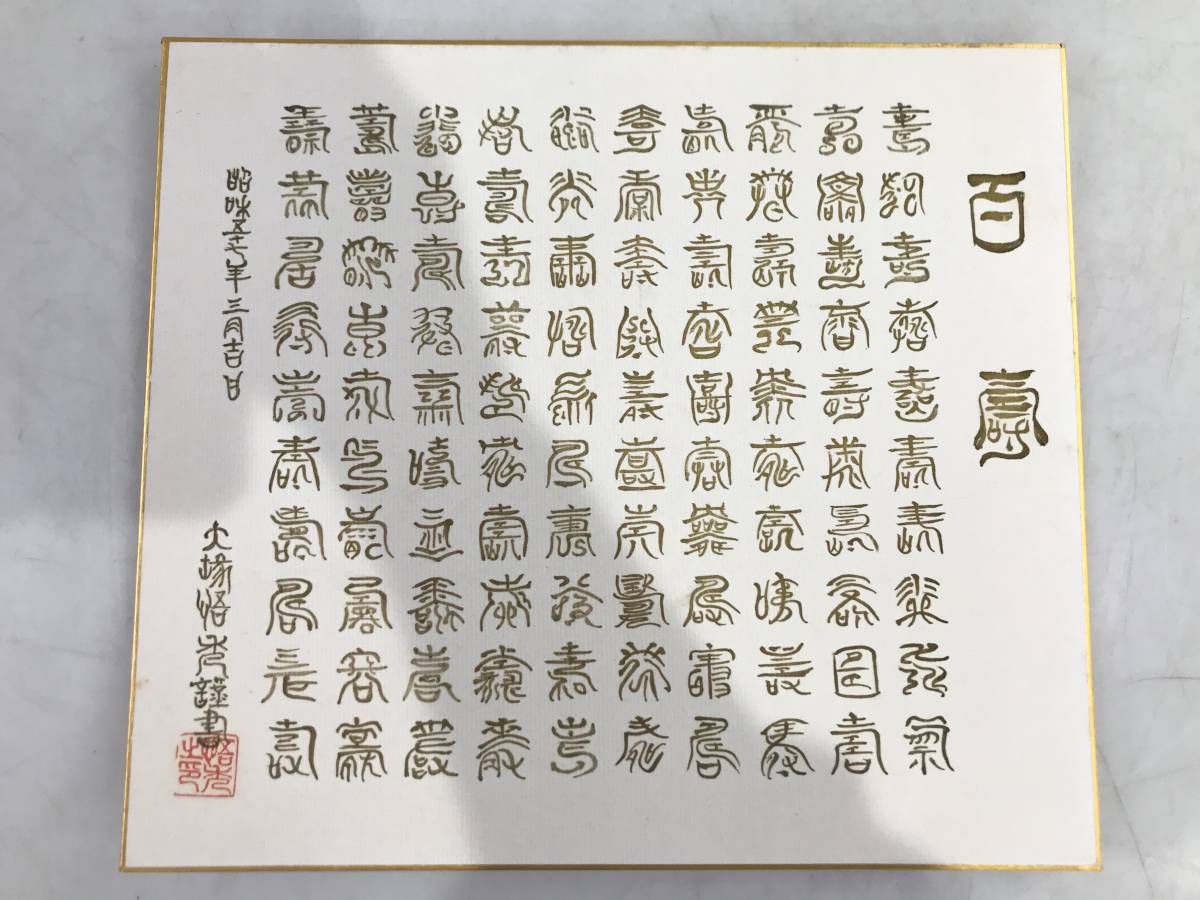 百壽
壽壽壽壽壽壽壽壽壽壽
壽壽壽壽壽壽壽壽壽壽
壽壽壽壽壽壽壽壽壽壽
壽壽壽壽壽壽壽壽壽壽
壽壽壽壽壽壽壽壽壽壽
壽壽壽壽壽壽壽壽壽壽
壽壽壽壽壽壽壽壽壽壽
壽壽壽壽壽壽壽壽壽壽
壽壽壽壽壽壽壽壽壽壽
壽壽壽壽壽壽壽壽壽壽
昭和五十七年三月吉日
大塚謹書